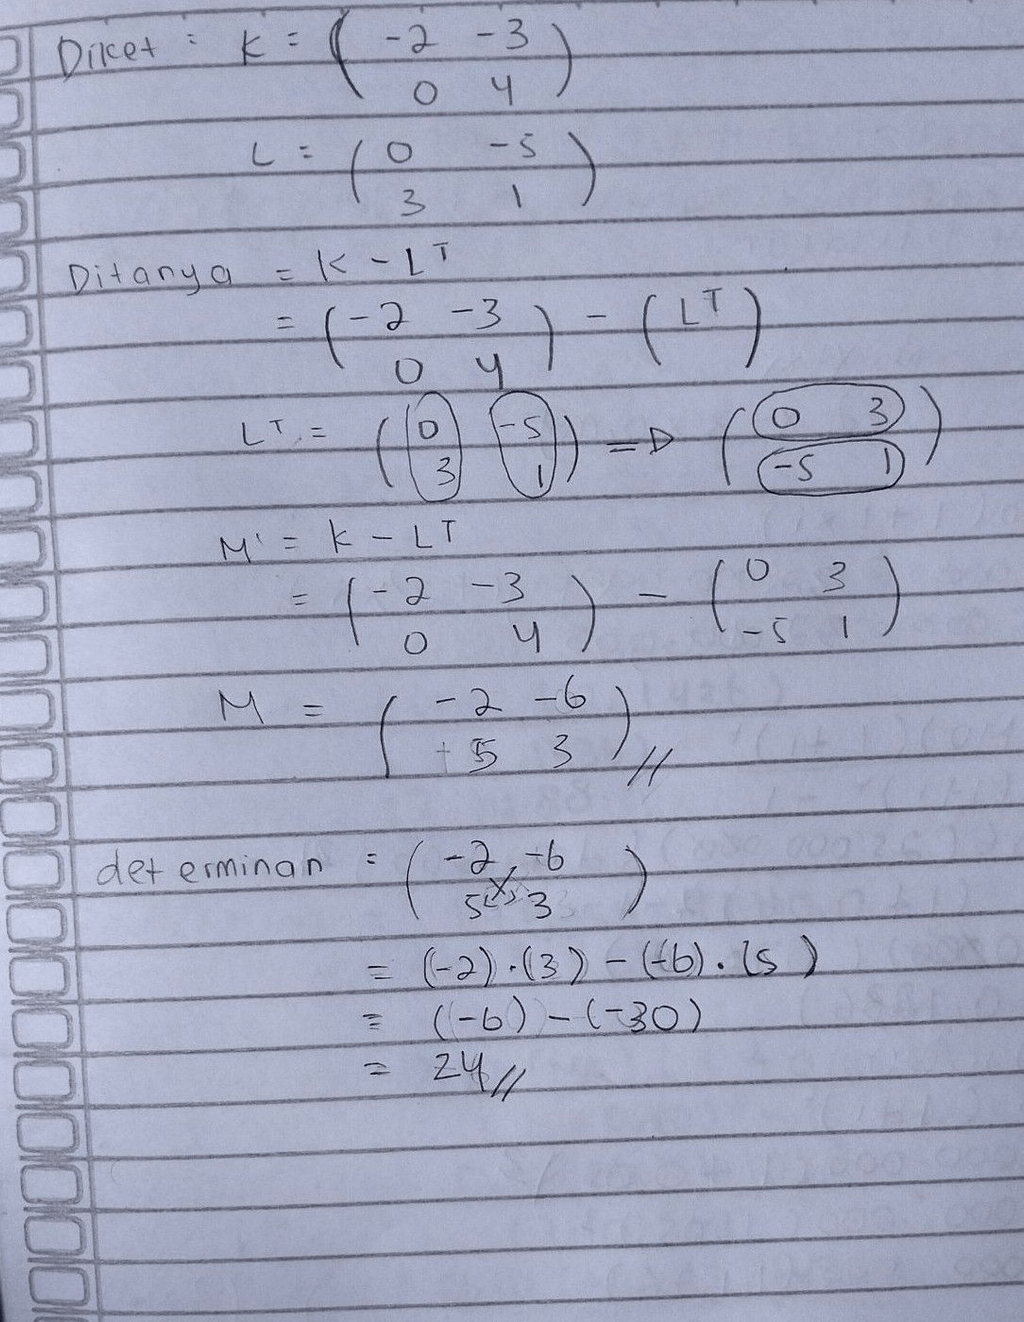 Diket : K = ( -2 -3
0 4 )
L = ( 0 -5
3 1 )
Ditanya = K - L^T
= ( -2 -3
0 4 ) - ( L^T )
L^T = ( 0 -5
3 1 ) => ( 0 3
-5 1 )
M' = K - L^T
= ( -2 -3
0 4 ) - ( 0 3
-5 1 )
M = ( -2 -6
+5 3 ) //
determinan = ( -2 -6
5 3 )
= (-2) . (3) - (-6) . (5)
= (-6) - (-30)
= 24 //